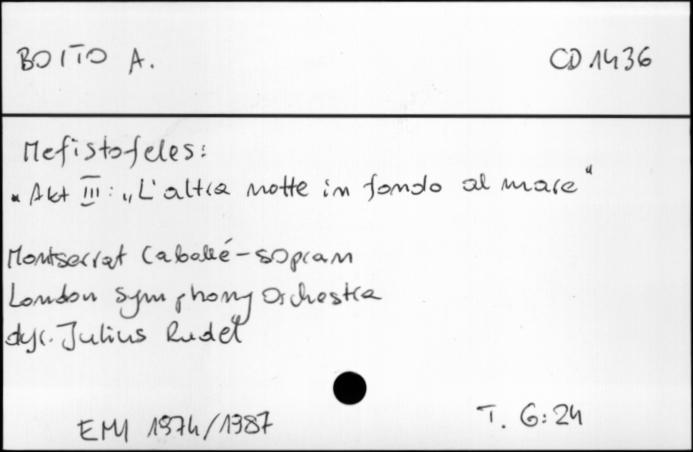 BOITO A.
CD 1436
Mefistofeles:
"Akt III: „L'altra notte in fondo al mare"
Montserrat Caballé - sopran
London Symphony Orchestra
dyr. Julius Rudel
EMI 1974/1987
T. 6:24